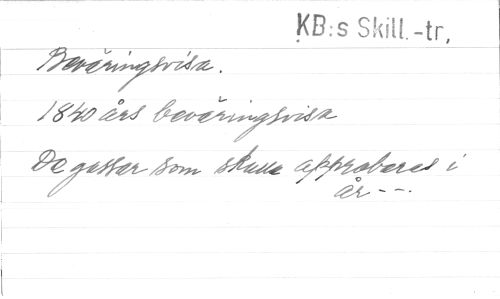 KB:s Skill.-tr,
Beväringsvisa.
1840 års beväringsvisa
De gossar som skulle approberas i
år---.